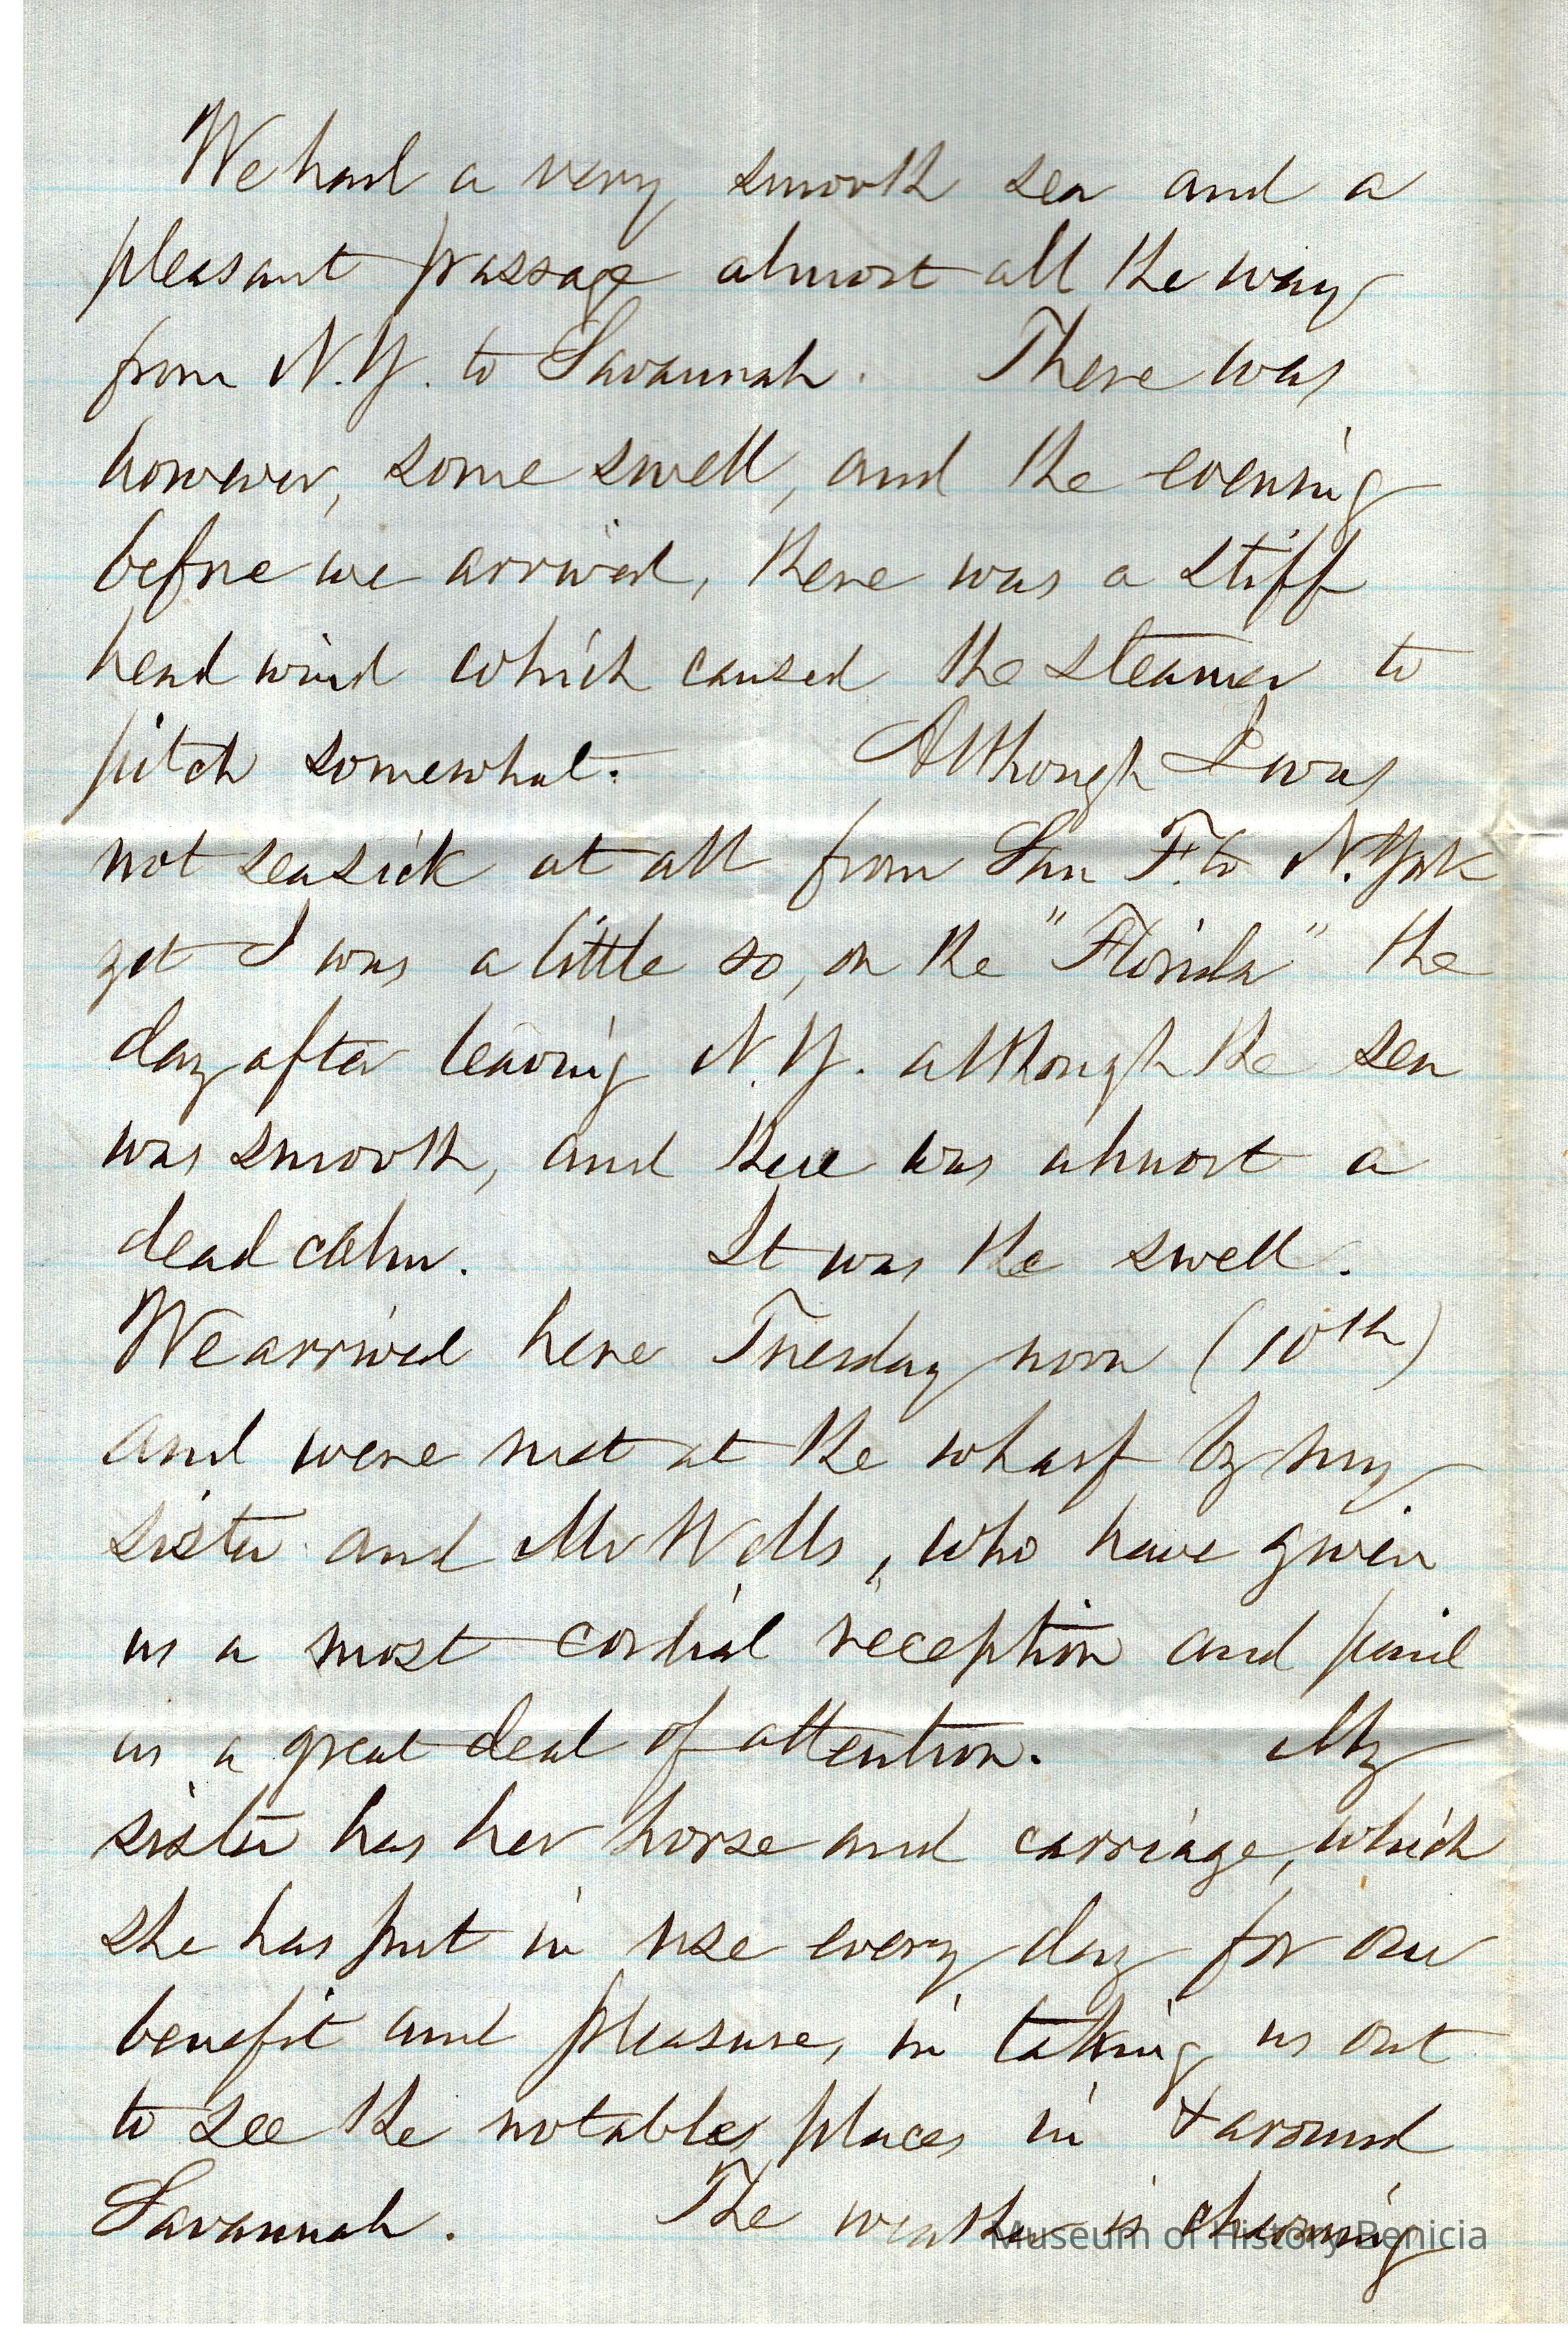 We had a very smooth sea and a
pleasant passage almost all the way
from N.Y. to Savannah. There was
however, some swell, and the evening
before we arrived, there was a stiff
head wind which caused the steamer to
pitch somewhat. Although I was
not seasick at all from San F. to N. York
yet I was a little so, on the "Florida" the
day after leaving N.Y. although the sea
was smooth, and there was almost a
dead calm. It was the swell.
We arrived here Tuesday noon (10th)
and were met at the wharf by my
sister and Mr Wells, who have given
us a most cordial reception and paid
us a great deal of attention. My
sister has her horse and carriage, which
she has put in use every day for our
benefit and pleasure, in taking us out
to see the notables places in & around
Savannah. The weather is charming
Museum of History Benicia